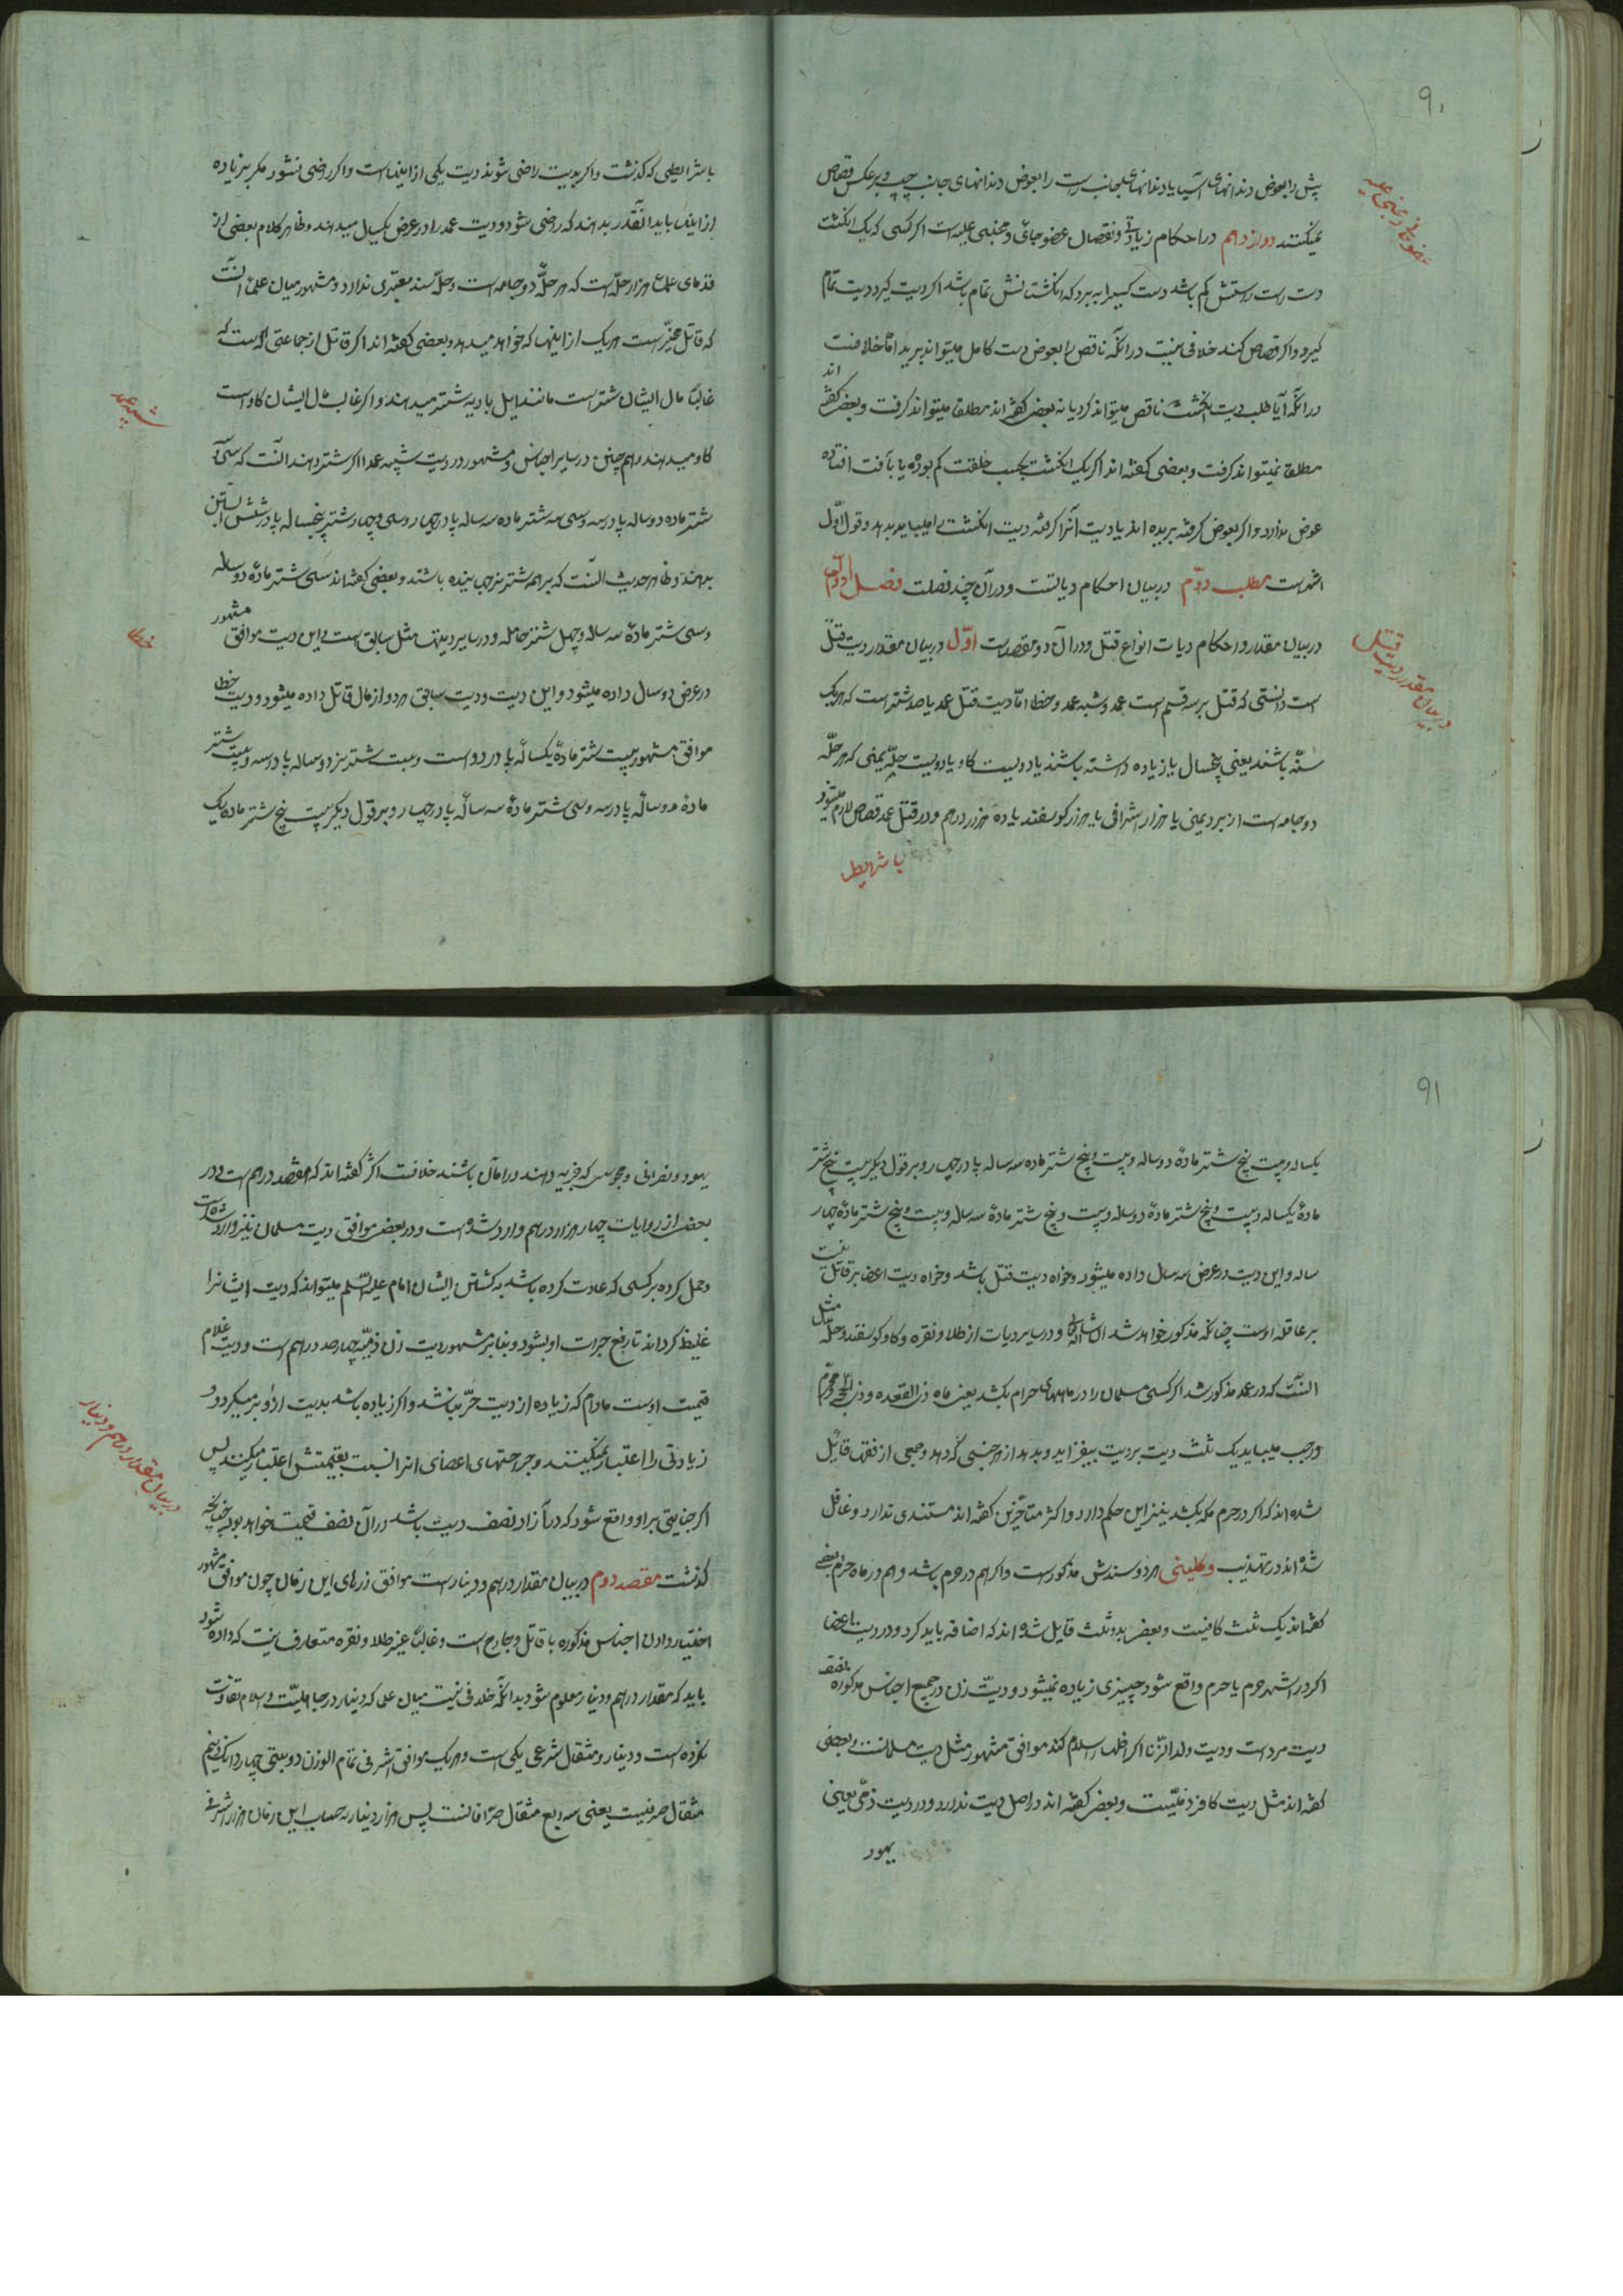 ۹۰
پیش را بعوض دندانهای آسیا یا دندانهای جانب راست را بعوض دندانهای جانب چپ و برعکس قصاص
نمیکنند دوازدهم در احکام زیادتی و نقصان عضو جانی و مجنی علیه است اگر کسی که یک انگشت
دست راستش کم باشد دست کسیرا ببرد که انگشتانش تمام باشد اگر دیت گیرد دیت تمام
گیرد و اگر قصاص کند خلافی نیست در آنکه ناقص را بعوض دست کامل میتواند برید اما خلافست
در آنکه آیا طلب دیت انگشت ناقص میتواند کرد یا نه بعضی گفته‌اند مطلقا میتواند گرفت و بعضی گفته اند
مطلقا نمیتواند گرفت و بعضی گفته اند اگر یک انگشت بحسب خلقت کم بوده یا بآفت افتاده
عوض ندارد و اگر بعوض گرفته بریده اند یا دیت آنرا گرفته دیت انگشت را میباید بدهد و قول اول
اشهر است مطلب دوّم در بیان احکام دیاتست و در آن چند فصلست فصل اوّل
در بیان مقدار و احکام دیات انواع قتل و در آن دو مقصدست اوّل در بیان مقدار دیت قتل
است دانستی که قتل بر سه قسم است عمد و شبه عمد و خطا امّا دیت قتل عمد یا صد شتر است که هر یک
مسنّه باشند یعنی پنجسال یا زیاده داشته باشند یا دویست گاو یا دویست حلّه یمنی که هر حلّه
دو جامه است از برد یمنی یا هزار اشرفی یا هزار گوسفند یا ده هزار درهم و در قتل عمد قصاص لازم میشود
با شرایطی
عضو جانی و مجنی علیه
در بیان مقدار دیت قتل
با شرایطی که گذشت و اگر بدیت راضی شوند دیت یکی از اینهاست و اگر راضی نشود مگر بزیاده
از اینها باید آنقدر بدهند که راضی شود و دیت عمد را در عرض یکسال میدهند و ظاهر کلام بعضی از
قدمای علما هزار حلّه است که هر حلّه دو جامه است و حلّه سند معتبری ندارد و مشهور میان علما آنست
که قاتل مخیّر است هر یک از اینها که خواهد میدهد و بعضی گفته اند اگر قاتل از جماعتی است که
غالبا مال ایشان شتر است مانند اهل بادیه شتر میدهند و اگر غالب مال ایشان گاو است
گاو میدهند و هم چنین در سایر اجناس و مشهور در دیت شبیه عمد اگر شتر دهند آنست که سی و سه
شتر ماده دو ساله پا در سه و سی و سه شتر ماده سه ساله پا در چهار و سی و چهار شتر پنجساله پا در شش آبستن
بدهند و ظاهر حدیث آنست که بر همه شتر نر جهانیده باشند و بعضی گفته اند سی شتر مادهٔ دو ساله
و سی شتر مادهٔ سه ساله و چهل شتر حامله و در سایر دیتها مثل سابق است و این دیت موافق مشهور
در عرض دو سال داده میشود و این دیت و دیت سابق هر دو از مال قاتل داده میشود و دیت خطا
موافق مشهور بیست شتر مادهٔ یکساله پا در دو است و بیست شتر نر دو ساله پا در سه و بیست شتر
مادهٔ دو ساله پا در سه و سی شتر مادهٔ سه ساله پا در چهار و بر قول دیگر بیست پنج شتر ماده یک
شبیه عمد
خطا
۹۱
یکساله و بیست پنج شتر مادهٔ دو ساله و بیست و پنج شتر ماده سه ساله پا در چهار و بر قول دیگر بیست پنج شتر
مادهٔ یکساله و بیست و پنج شتر مادهٔ دو ساله و بیست و پنج شتر مادهٔ سه ساله و بیست و پنج شتر مادهٔ چهار
ساله و این دیت در عرض سه سال داده میشود و خواه دیت قتل باشد و خواه دیت اعضا بر قاتل نیست
بر عاقله اوست چنانکه مذکور خواهد شد ان شاء الله تعالی و در سایر دیات از طلا و نقره و گاو و گوسفند و حلّه مثل
آنست که در عمد مذکور شد اگر کسی مسلمان را در ماههای حرام بکشد یعنی ماه ذی القعده و ذی الحجه و محرّم
و رجب میباید یک ثلث دیت بر دیت بیفزاید و بدهد از هر جنسی که دهد و جمعی از فقها قایل
شده اند که اگر در حرم مکه بکشد نیز این حکم دارد و اکثر متأخرین گفته اند مستندی ندارد و غافل
شده اند در تهذیب و کلینی هر دو سندش مذکور است و اگر هم در حرم باشد و هم در ماه حرام بعضی
گفته اند یک ثلث کافیست و بعضی بدو ثلث قایل شده اند که اضافه باید کرد و در دیت اعضا
اگر در اشهر حرم یا حرم واقع شود چیزی زیاده نمیشود و دیت زن در جمیع اجناس مذکوره نصف
دیت مرد است و دیت ولد الزّنا اگر اظهار اسلام کند موافق مشهور مثل دیت مسلمانست و بعضی
گفته اند مثل دیت کافر ذمّیست و بعضی گفته اند در اصل دیت ندارد و در دیت ذمّی یعنی
یهود
یهود و نصرانی و مجوسی که جزیه دهند و در امان باشند خلافست اکثر گفته اند که هشتصد درهم است و در
بعضی از روایات چهار هزار درهم وارد شده است و در بعضی موافق دیت مسلمان نیز وارد شده است
و حمل کرده بر کسی که عادت کرده باشد بکشتن ایشان امام علیه السّلم میتواند که دیت ایشانرا
غلیظ گرداند تا رفع جرات او بشود و بنابر مشهور دیت زن ذمّیه چهار صد درهم است و دیت غلام
قیمت اوست مادام که زیاده از دیت حرّ نباشد و اگر زیاده باشد بدیت آزاد بر میگردد و
زیادتی را اعتبار نمیکنند و جراحتهای اعضای او را نسبت بقیمتش اعتبار میکنند پس
اگر جنایتی بر او واقع شود که در آزاد نصف دیت باشد در آن نصف قیمت خواهد بود چنانچه
گذشت مقصد دوم در بیان مقدار درهم و دینار است موافق زرهای این زمان چون موافق مشهور
اختیار دادن اجناس مذکوره با قاتل و جارح است و غالبا غیر طلا و نقره متعارف نیست که داده شود
باید که مقدار درهم و دینار معلوم شود بدانکه خلافی نیست میان علما که دینار در جاهلیّت و اسلام تفاوت
نکرده است و دینار و مثقال شرعی یکی است و هر یک موافق اشرفی تمام الوزن دو بتی چهار دانگ و نیم
مثقال صرفیست یعنی سه ربع مثقال صرافانست پس هزار دینار به حساب این زمان هزار اشرفی
در بیان مقدار درهم و دینار